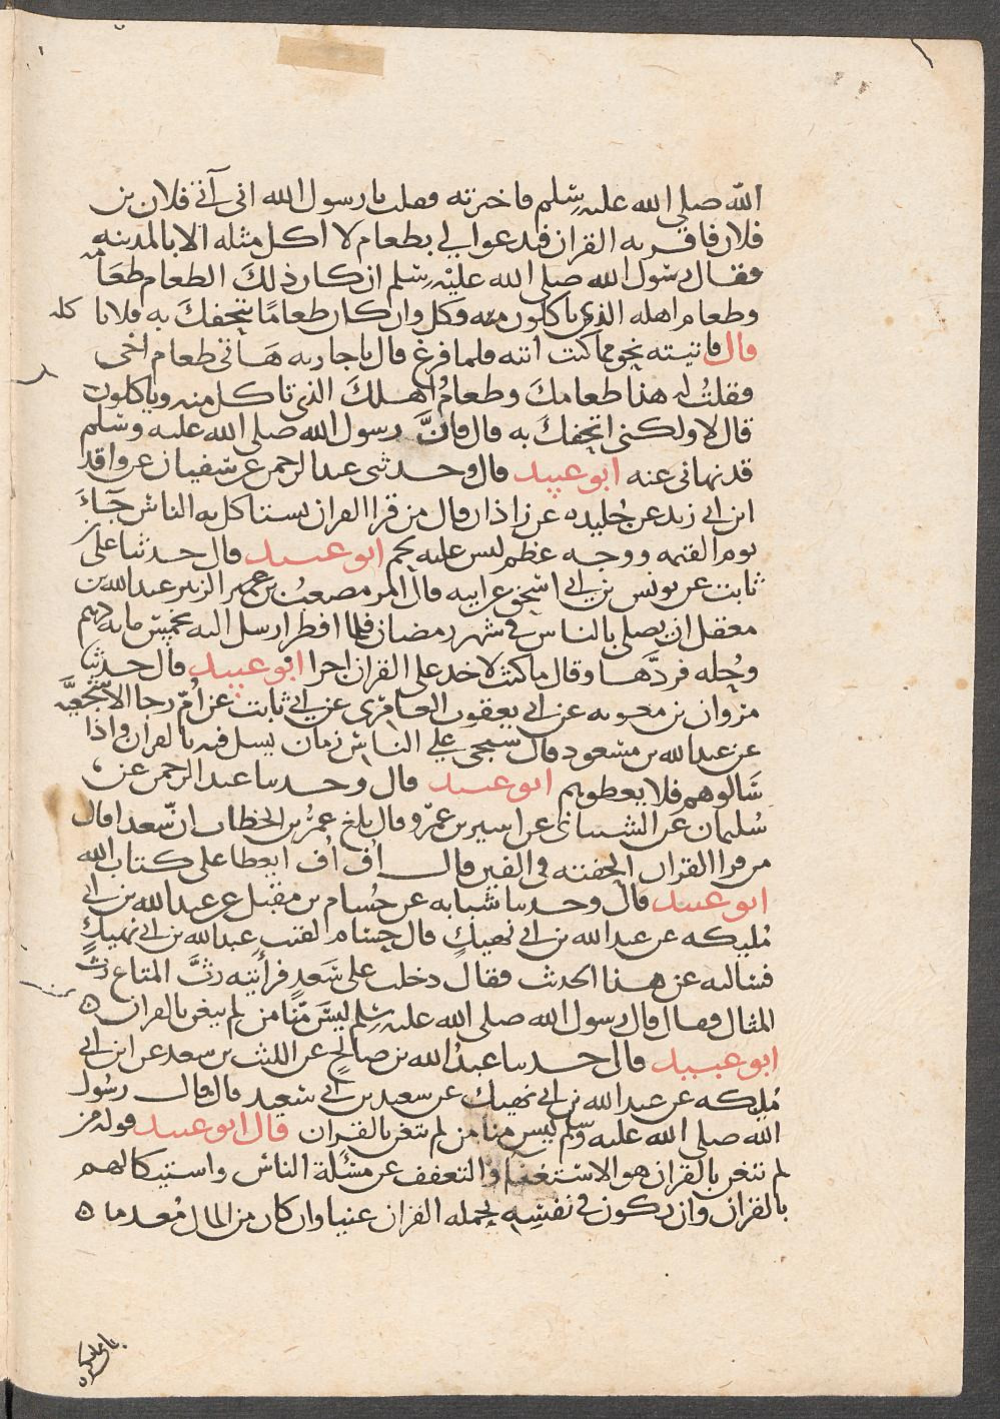 الله صلى الله عليه وسلم فاخبرته فقلت يا رسول الله انى آتى فلان بن
فلان فاقريه القران فيدعوا لي بطعام لا اكل مثله الا بالمدينه
فقال رسول الله صلى الله عليه وسلم ان كان ذلك الطعام طعامه
وطعام اهله الذي ياكلون منه فكل وان كان طعامًا يتحفك به فلا تاكله
قال فاتيته نحو مما كنت اتته فلما فرغ قال يا جاريه هاتى طعام اخى
فقلتُ له هذا طعامك وطعامُ اهلكَ الذى تاكل منه وياكلون
قال لا ولكنى اتحفك به قال فانَّ رسول الله صلى الله عليه وسلم
قد نهانى عنه ابو عبيد قال وحدثنى عبد الرحمن عن سفيان عن واقد
ابن ابي زيد عن خُليده عن زاذان قال من قرا القران يستاكل به الناس جَآءَ
يوم القيمه ووجهه عظم ليس عليه لحم ابو عبيد قال حدثنا على بن
ثابت عن يونس بن ابي اسحق عن ابيه قال امر مصعبُ بن عمير الزبير عبد الله بن
معقل ان يصلى بالناس في شهر رمضان فلما افطر ارسل اليه بخمس مايه درهم
وحُله فردَّها وقال ما كنت لاخذ على القران اجرا ابو عبيد قال حدثنا
مروان بن معويه عن ابي يعقوب العامرى عن ابي ثابت عن اُمّ رجا الاشجعيَّه
عن عبد الله بن مسعود قال سيجى على الناس زمان يسل فيه بالقران واذا
سَالوهم فلا يعطوهم ابو عبيد قال وحدثنا عبد الرحمن عن
سُليمان عن الشيبانى عن اسير بن عمرو قال بلغ عمرُ بن الخطاب انّ سعدا قال
من قرا القران الحقته في الفين قال اُف اُف ايعطا على كتاب الله
ابو عبيد قال وحدثنا شبابه عن حُسام بن مقبل عن عبد الله بن ابي
مُليكه عن عبد الله بن ابي نهيك قال حسام لقيت عبد الله بن ابي نهيكٍ
فسالته عن هذا الحدث فقال دخلت على سَعدٍ فرأيته رثَّ المتاع رثَّ
المثال فقال قال رسول الله صلى الله عليه وسلم ليسَ منَّا من لم يتغن بالقران ه
ابو عبيد قال حدثنا عبدُ الله بن صالحٍ عن الليث بن سعد عن ابن ابي
مُليكه عن عبد الله بن ابي نهيك عن سعيد بن ابي سعيد قال قال رسول
الله صلى الله عليه وسلم ليس منا من لم يتغن بالقران قال ابو عبيد قوله من
لم يتغن بالقران هو الاستغنا والتعفف عن مسئلة الناس واستيكالهم
بالقران وان يكون في نفسه بحمله القران غنيا وان كان من المال مُعدما ه